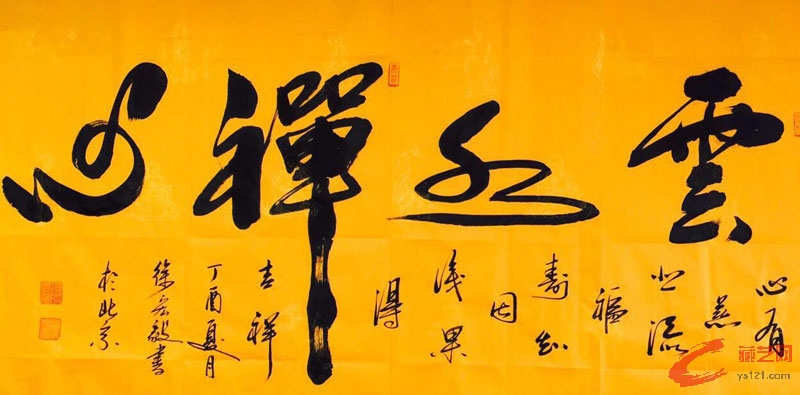 雲水禪心
心有
慈
悲添
福
壽知
因
識果
得
吉祥
丁酉夏月
徐毅書
於北京
藏艺网
ys121.com